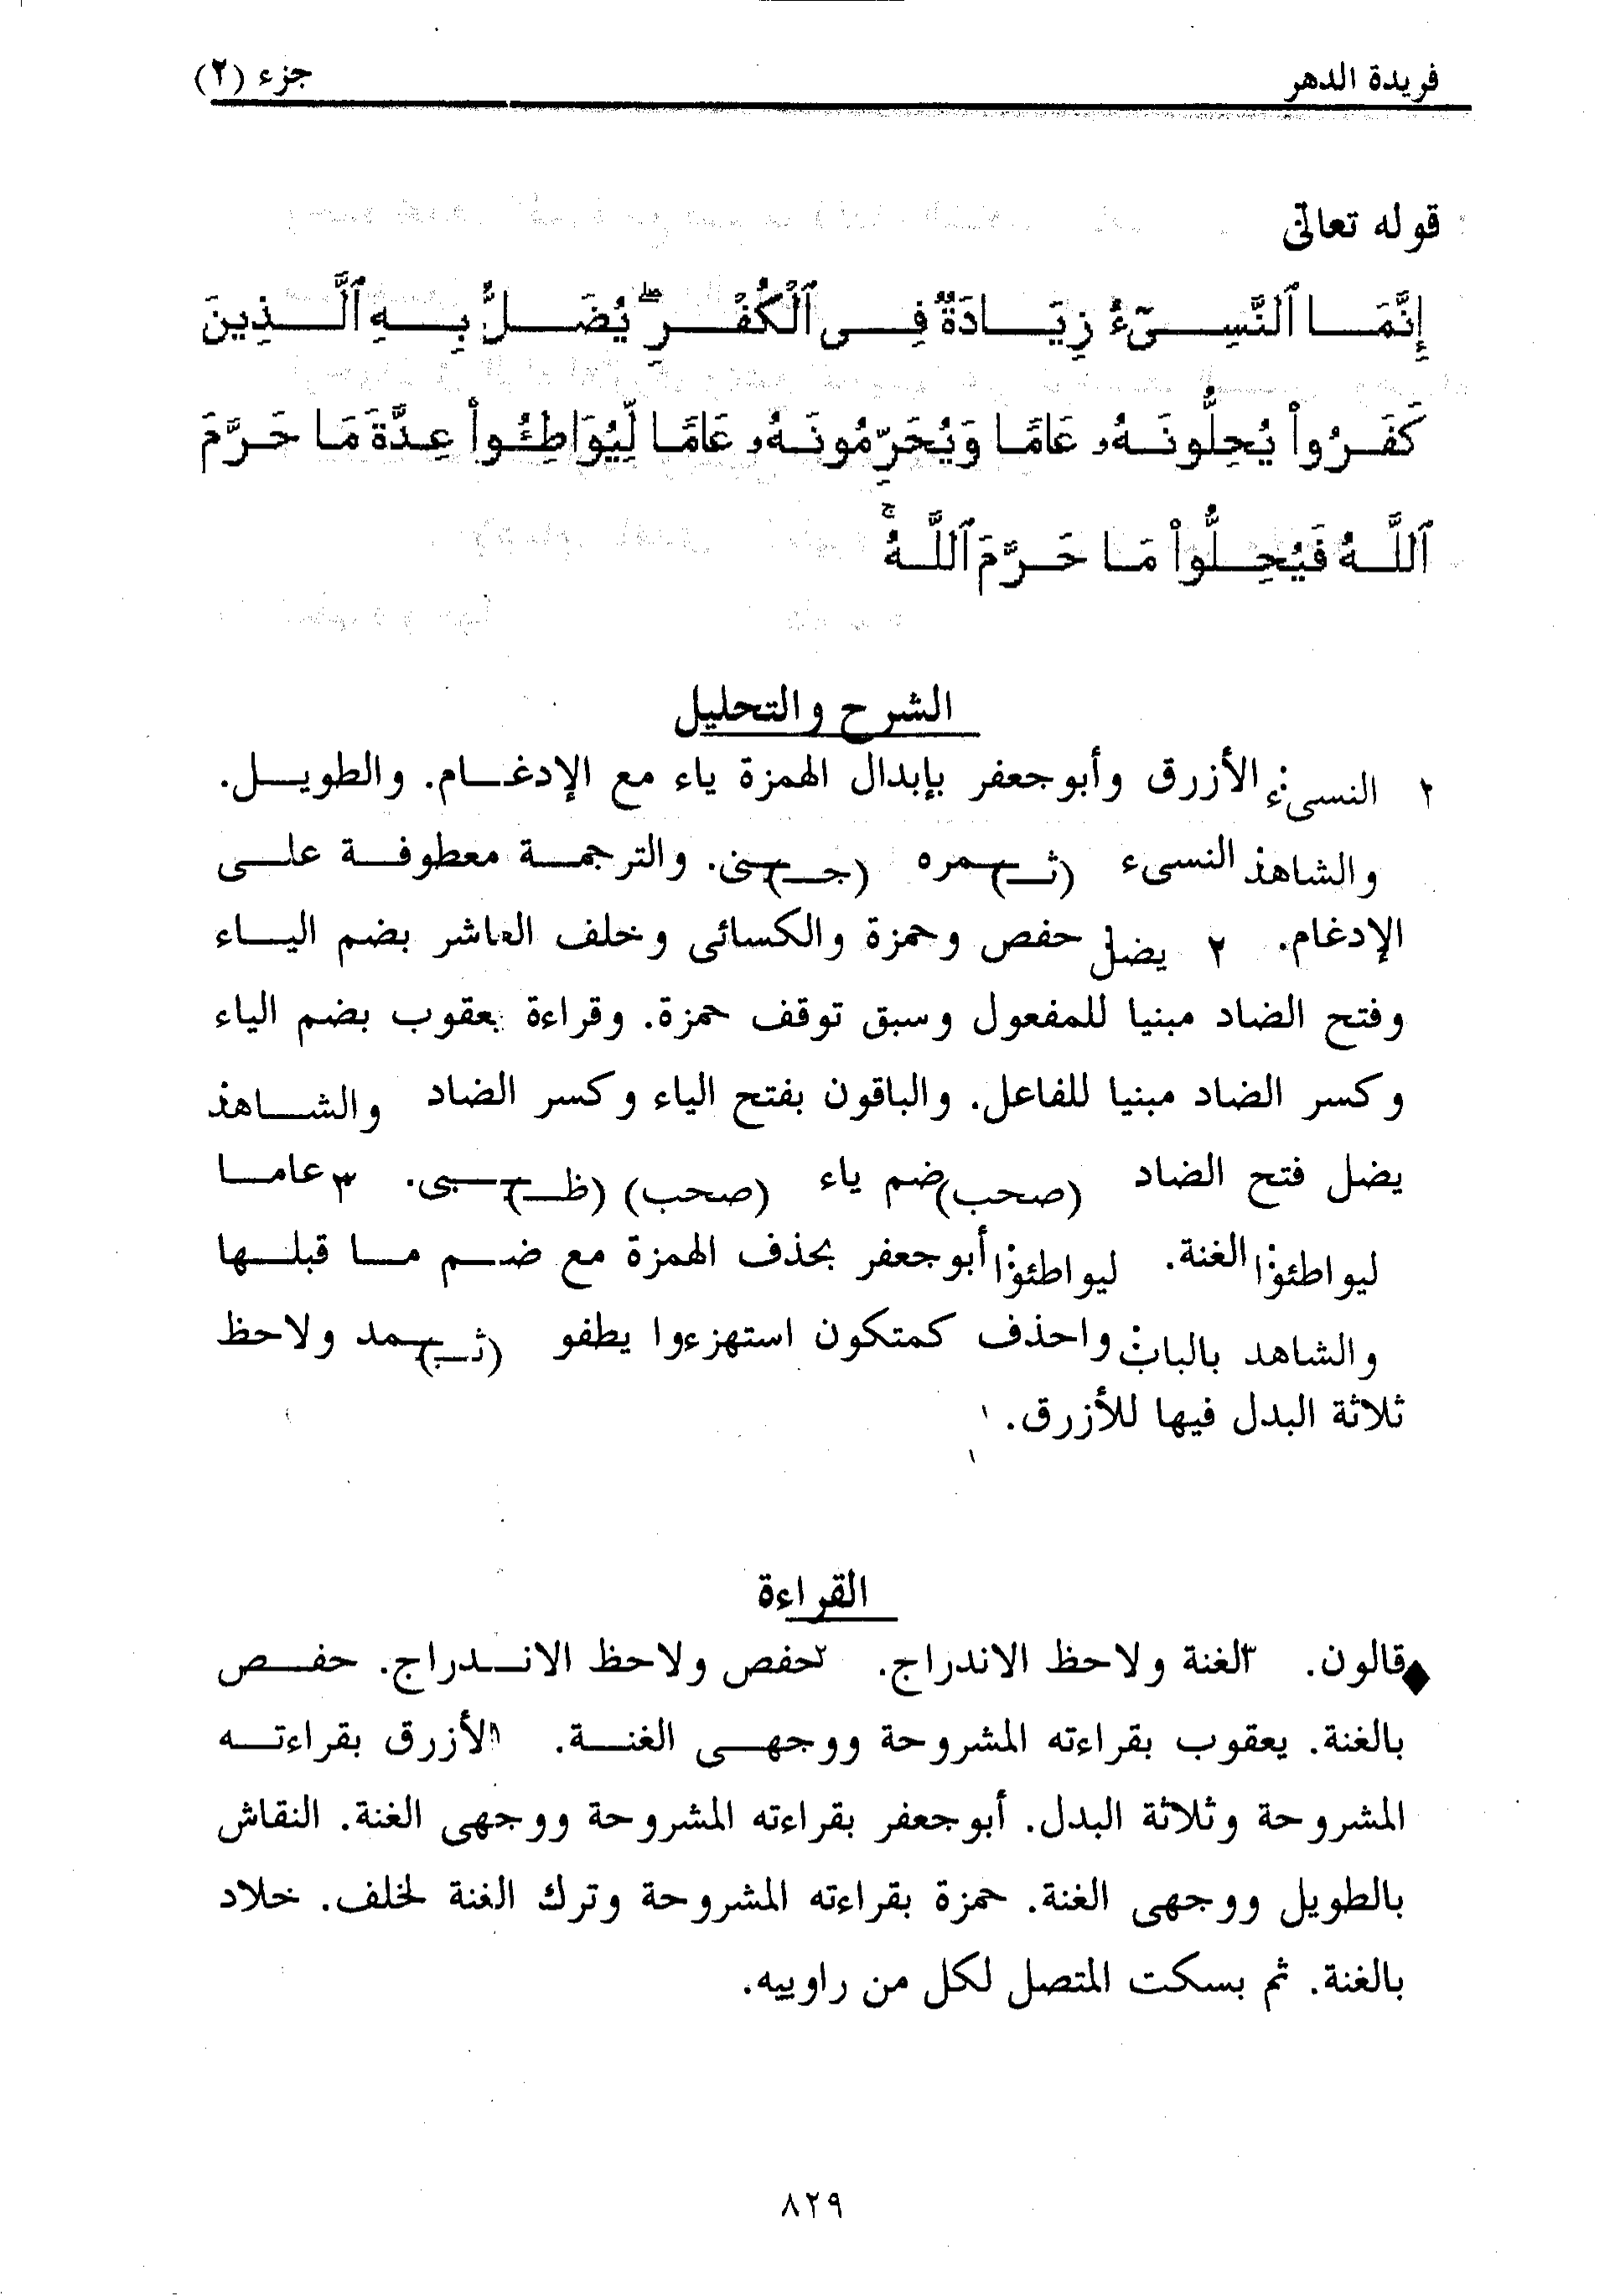 فريدة الدهر
جزء (٢)
قوله تعالى
إِنَّمَا ٱلنَّسِىٓءُ زِيَادَةٌ فِى ٱلْكُفْرِ ۖ يُضَلُّ بِهِ ٱلَّذِينَ
كَفَرُوا۟ يُحِلُّونَهُۥ عَامًا وَيُحَرِّمُونَهُۥ عَامًا لِّيُوَاطِـُٔوا۟ عِدَّةَ مَا حَرَّمَ
ٱللَّهُ فَيُحِلُّوا۟ مَا حَرَّمَ ٱللَّهُ ۚ
الشرح والتحليل
١ النسىء: الأزرق وأبوجعفر بإبدال الهمزة ياء مع الإدغـام. والطويـل.
والشاهد: النسىء (ثـ)ـمره (جـ)ـنى. والترجمـة معطوفـة علـى
الإدغام. ٢ يضل: حفص وحمزة والكسائى وخلف العاشر بضم اليـاء
وفتح الضاد مبنيا للمفعول وسبق توقف حمزة. وقراءة يعقوب بضم الياء
وكسر الضاد مبنيا للفاعل. والباقون بفتح الياء وكسر الضاد والشـاهد:
يضل فتح الضاد (صحب) ضم ياء (صحب) (ظـ)ـبى. ٣ عامـا
ليواطئوا: الغنة. ليواطئوا: أبوجعفر بحذف الهمزة مع ضـم مـا قبلـها
والشاهد بالباب: واحذف كمتكون استهزءوا يطفو (ثـ)ـمد ولاحظ
ثلاثة البدل فيها للأزرق.
القراءة
◆ قالون. ٣ الغنة ولاحظ الاندراج. ٢ حفص ولاحظ الانـدراج. حفـص
بالغنة. يعقوب بقراءته المشروحة ووجهـى الغنـة. ١ الأزرق بقراءتـه
المشروحة وثلاثة البدل. أبوجعفر بقراءته المشروحة ووجهى الغنة. النقاش
بالطويل ووجهى الغنة. حمزة بقراءته المشروحة وترك الغنة لخلف. خلاد
بالغنة. ثم بسكت المتصل لكل من راوييه.
٨٢٩